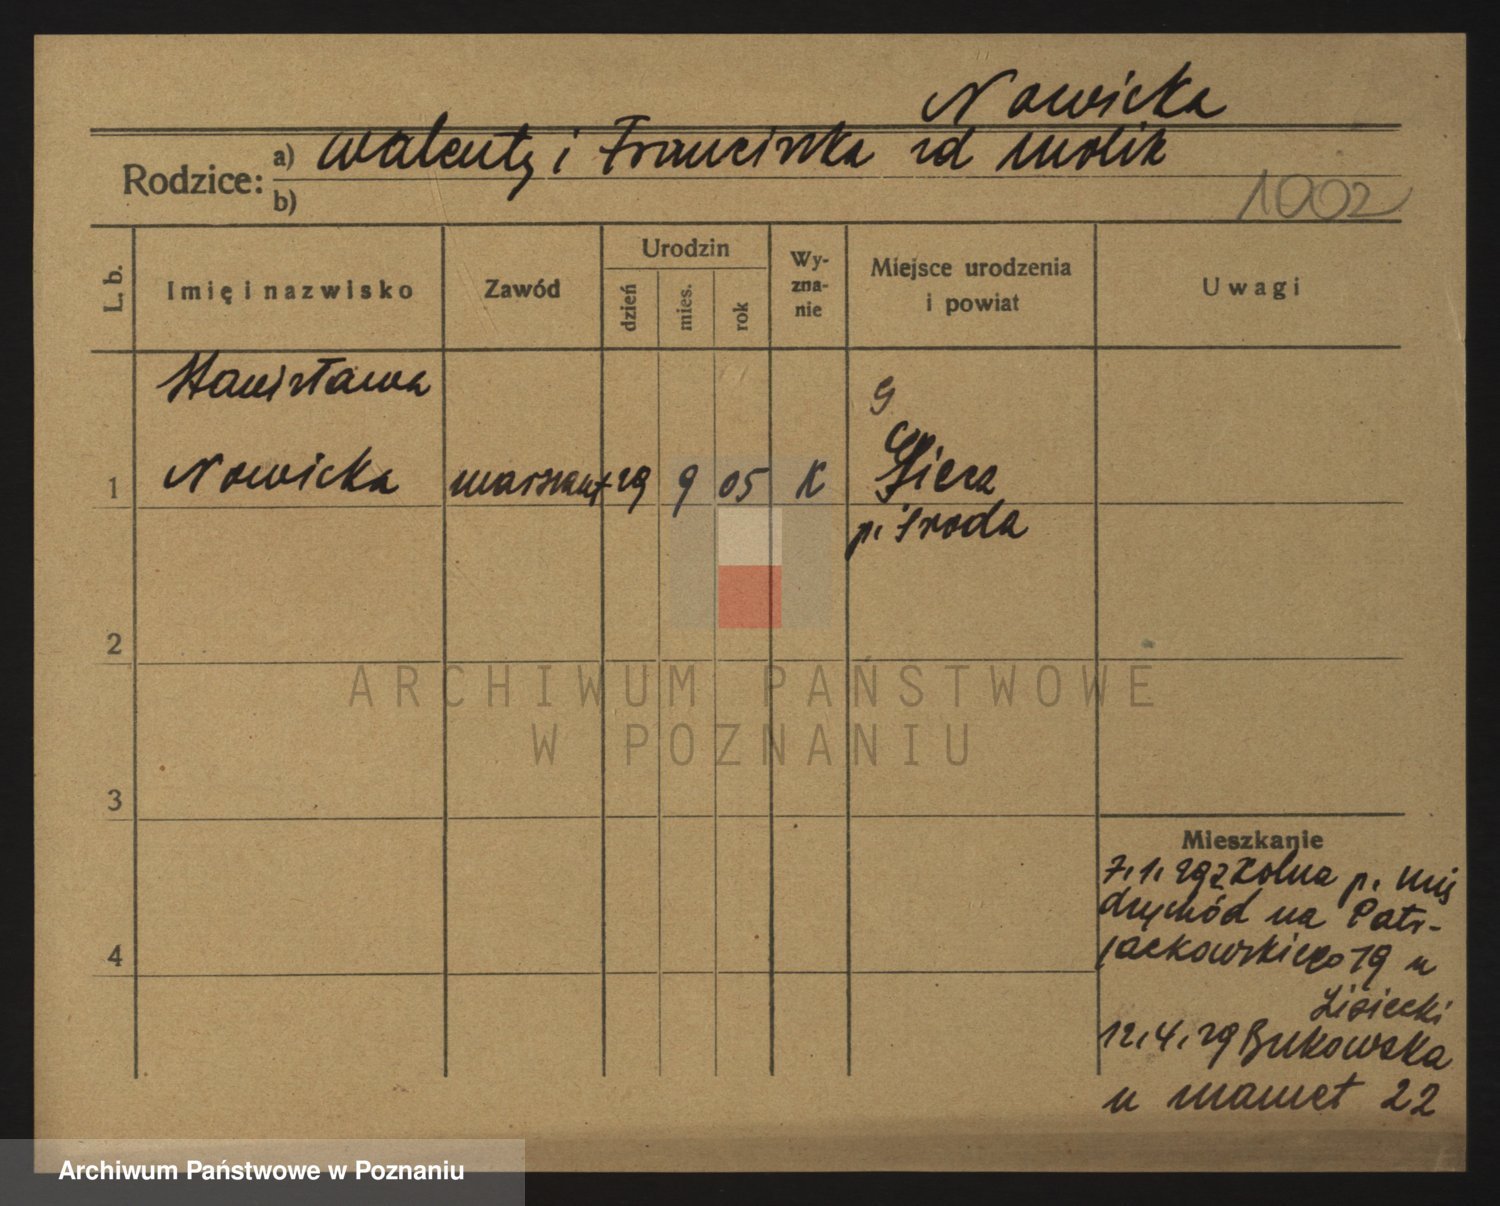 Nowicka
Rodzice:
a) Walenty i Franciszka zd Molik
b)
1002
L. b.
Imię i nazwisko
Zawód
Urodzin
dzień
mies.
rok
Wy-
zna-
nie
Miejsce urodzenia
i powiat
Uwagi
Stanisława
G
1 Nowicka 29 9 05 K
p. Środa
2
3
4
Mieszkanie
7.1.29 z Kolna p. Mię
dzychód na Patr-
jackowskiego 19 u
Lisiecki
12.4.29 Bukowska
u Mamet 22
ARCHIWUM PAŃSTWOWE
W POZNANIU
Archiwum Państwowe w Poznaniu